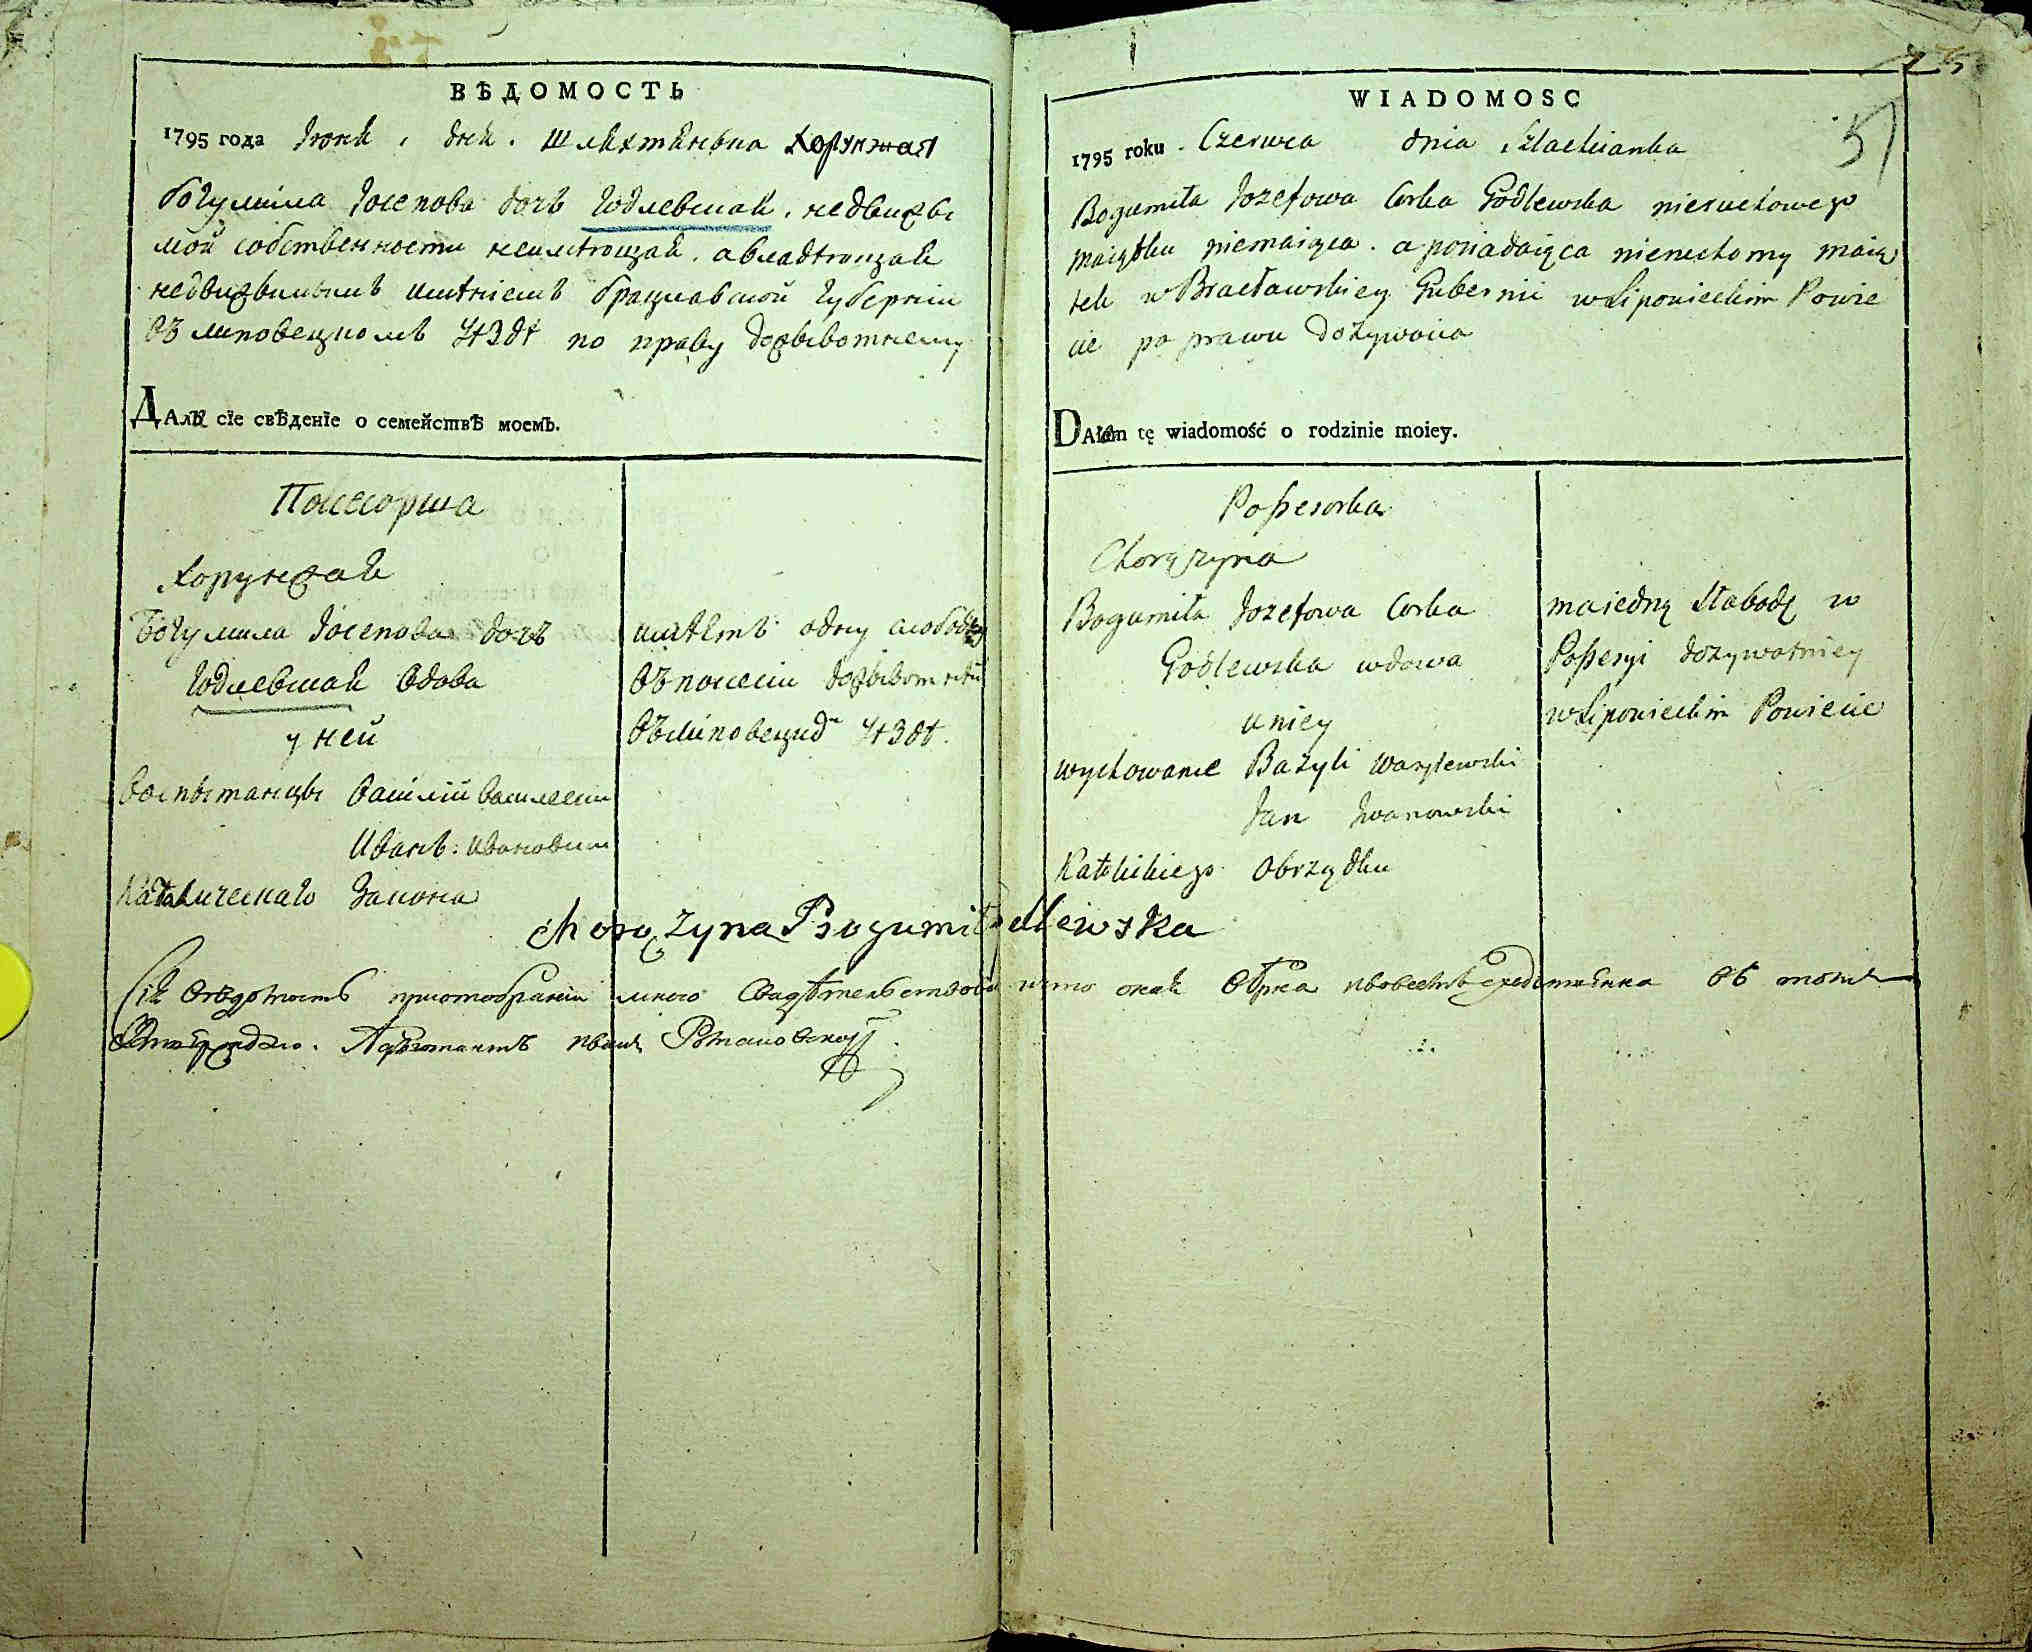 ВѢДОМОСТЬ
1795 года Іюня дня шляхтянка Хорунжая
богумила Іосепова дочь Годлевская, недвижи
мой собственности неимѣющая, авладѣющая
недвижимымъ имѣніемъ брацлавской губерніи
въ липовецкомъ уѣздѣ по праву доживотнему
Далъ сїе свѣденїе о семействѣ моемъ.
Посесорша
Хорунжая
Богумила Іосепова дочь
Годлевская вдова
у ней
воспытанцы василій василевски
Иванъ ивановски
Католическаго закона
имѣетъ одну слободу
въ посесіи доживотней
въ липовецкой уѣздѣ.
WIADOMOSC
25
51
1795 roku Czerwca dnia Szlachianka
Bogumiła Jozefowa Corka Godlewska nieruchowego
maiątku niemaiąca. a posiadaiąca nieruchomy maią
tek w Bracławskiey Gubernii w Lipowieckim Powie
cie po prawu dożywocia
Dałam tę wiadomość o rodzinie moiey.
Poſsesorka
Chorążyna
Bogumiła Jozefowa Corka
Godlewska wdowa
u niey
wychowanie Bazyli Wasylewski
Jan Iwanowski
Katolickiego Obrządku
ma iedną słabodę w
Poſsesyi dożywotniey
w Lipowieckim Powiecie
Chorążyna Bogumiła dlewska
Сія вѣдомость мною что оная въ томъ
Адъютантъ иванъ